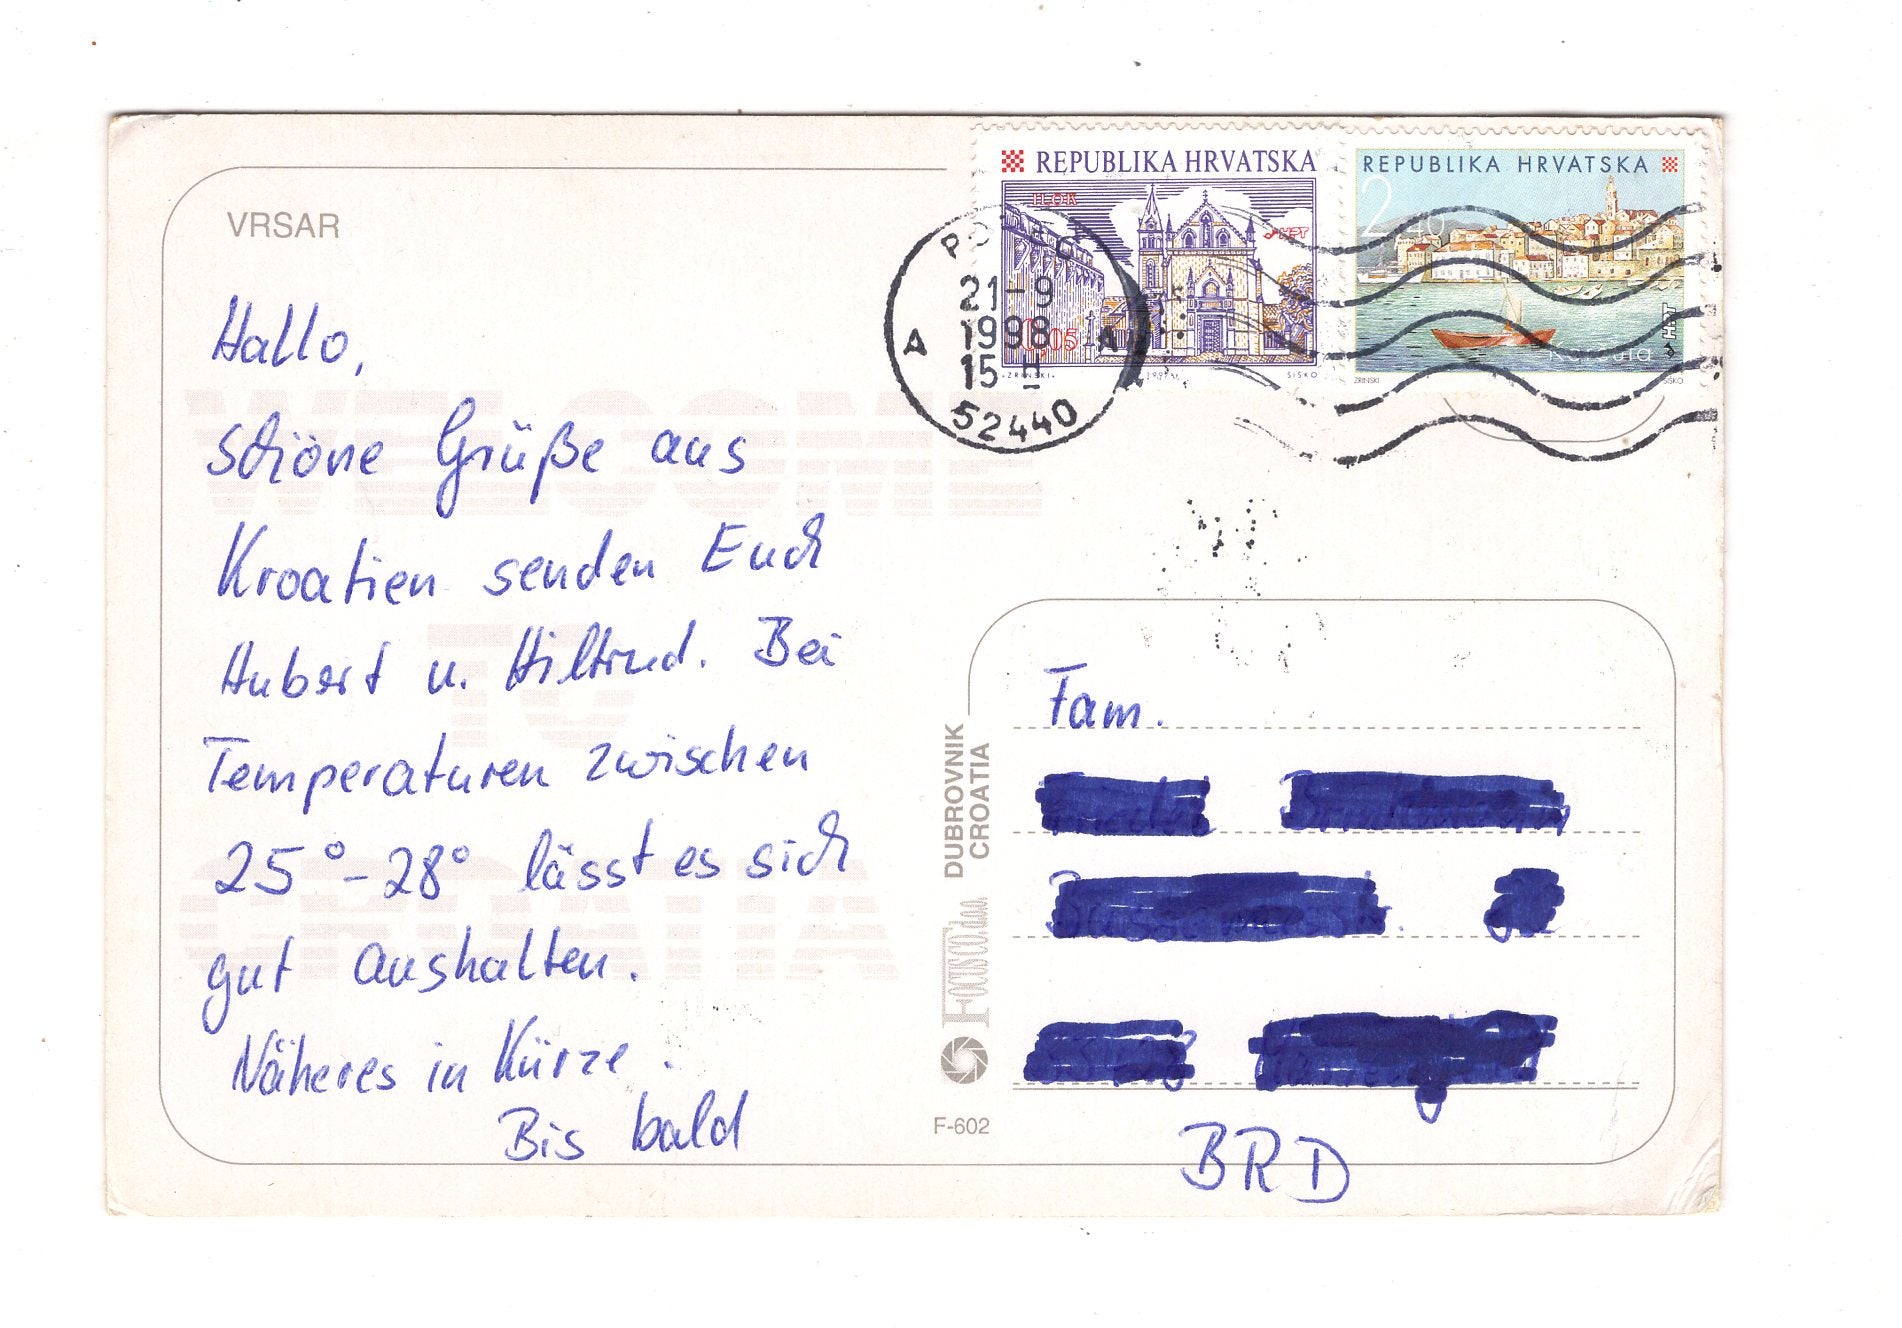 VRSAR
Hallo,
schöne Grüße aus
Kroatien senden Euch
Hubert u. Hiltrud. Bei
Temperaturen zwischen
25° - 28° lässt es sich
gut aushalten.
Näheres in Kürze.
Bis bald
WELCOME
TO
CROATIA
REPUBLIKA HRVATSKA
ILOK
HPT
ZRINSKI
1997.
SIŠKO
REPUBLIKA HRVATSKA
2,40
Korčula
HPT
ZRINSKI
SIŠKO
POREČ
21-9
1998
15
A A
52440
DUBROVNIK
CROATIA
F-602
Fam.
BRD